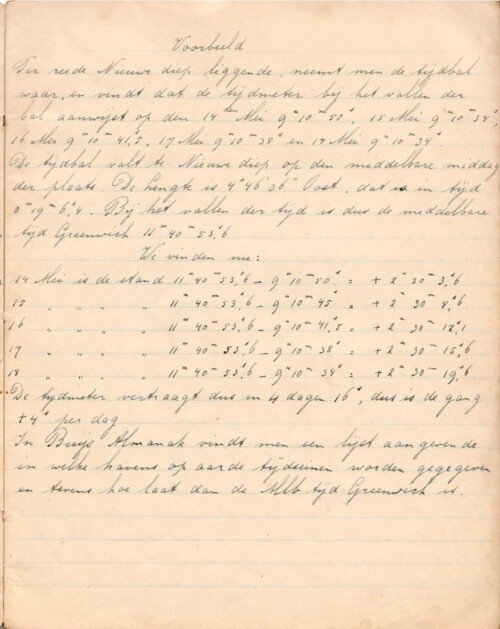 Voorbeeld
Ter reede Nieuwe diep liggende, neemt men de tijdbal
waar, en vindt dat de tijdmeter bij het vallen der
bal aanwijst op den 14den Mei 9u 10m 50s, 15 Mei 9u 10m
16 Mei 9u 10m 41s,5, 17 Mei 9u 10m 38s en 18 Mei 9u 10m 34s.
De tijdbal valt te Nieuwe diep op den middelbare middag
der plaats. De lengte is 4° 46' 36" Oost, dat is in tijd
0u 19m 6s,4. Bij het vallen der tijd is dus de middelbare
tijd Greenwich 11u 40m 53s,6
We vinden nu:
14 Mei is de stand 11u 40m 53s,6 - 9u 10m 50s = + 2u 30m 3s,6
15 " " " " 11u 40m 53s,6 - 9u 10m 45s = + 2u 30m 8s,6
16 " " " " 11u 40m 53s,6 - 9u 10m 41s,5 = + 2u 30m 12s,1
17 " " " " 11u 40m 53s,6 - 9u 10m 38s = + 2u 30m 15s,6
18 " " " " 11u 40m 53s,6 - 9u 10m 34s = + 2u 30m 19s,6
De tijdmeter vertraagt dus in 4 dagen 16s, dus is de gang
+4s per dag
In Buijs Almanak vindt men een lijst aangevende
in welke havens op aarde tijdseinen worden gegegeven
en tevens hoe laat dan de Mlb tijd Greenwich is.